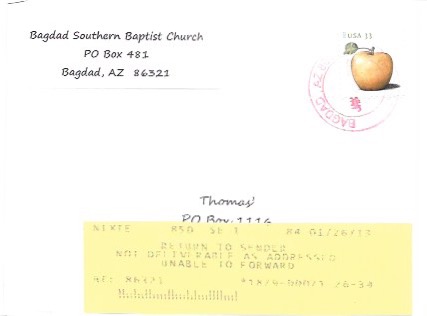 Bagdad Southern Baptist Church
PO Box 481
Bagdad, AZ 86321
USA 33
BAGDAD
Thomas'
PO Box 1116
NIXIE 850 SE 1 84 01/26/13
RETURN TO SENDER
NOT DELIVERABLE AS ADDRESSED
UNABLE TO FORWARD
BC: 86321